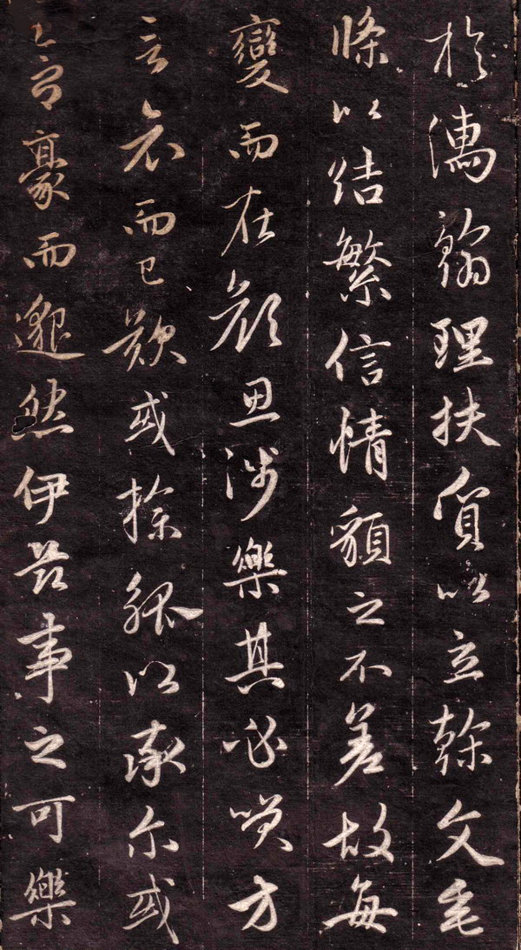 於濡翰理扶質以立榦文垂
條以結繁信情䫉之不差故每
變而在顏思涉樂其必咲方
言哀而已歎或操觚以率尓或
含豪而邈然伊茲事之可樂